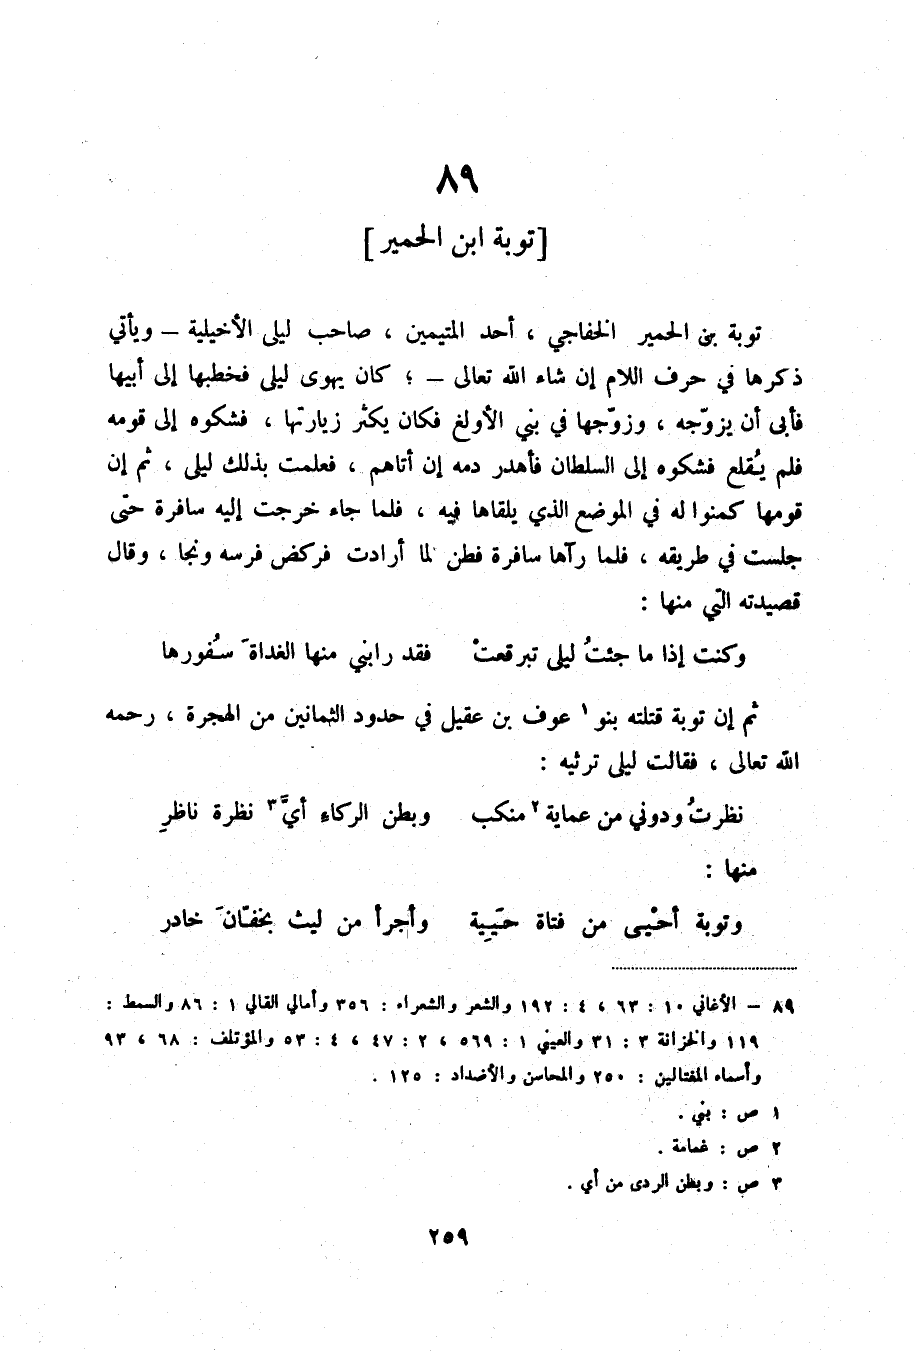 ٨٩
[توبة ابن الحمير]
توبة بن الحمير الخفاجي ، أحد المتيمين ، صاحب ليلى الأخيلية – ويأتي
ذكرها في حرف اللام إن شاء الله تعالى – ؛ كان يهوى ليلى فخطبها إلى أبيها
فأبى أن يزوّجه ، وزوّجها في بني الأولغ فكان يكثر زيارتها ، فشكوه إلى قومه
فلم يُقلع فشكوه إلى السلطان فأهدر دمه إن أتاهم ، فعلمت بذلك ليلى ، ثم إن
قومها كمنوا له في الموضع الذي يلقاها فيه ، فلما جاء خرجت إليه سافرة حتّى
جلست في طريقه ، فلما رآها سافرة فطن لما أرادت فركض فرسه ونجا ، وقال
قصيدته التّي منها :
وكنت إذا ما جئتُ ليلى تبرقعتْ فقد رابني منها الغداةَ سُفورها
ثم إن توبة قتلته بنو ١ عوف بن عقيل في حدود الثمانين من الهجرة ، رحمه
الله تعالى ، فقالت ليلى ترثيه :
نظرتُ ودوني من عماية ٢ منكب وبطن الركاء أيَّ ٣ نظرة ناظرِ
منها :
وتوبة أحْيى من فتاة حيّيِة وأجرأ من ليث بخفّانَ خادر
٨٩ – الأغاني ١٠ : ٦٣ ، ٤ : ١٩٢ والشعر والشعراء : ٣٥٦ وأمالي القالي ١ : ٨٦ والسمط :
١١٩ والخزانة ٣ : ٣١ والعيني ١ : ٥٦٩ ، ٢ : ٤٧ ، ٤ : ٥٣ والمؤتلف : ٦٨ ، ٩٣
وأسماء المغتالين : ٢٥٠ والمحاسن والأضداد : ١٢٥ .
١ ص : بني .
٢ ص : غمامة .
٣ ص : وبظن الردى من أي .
٢٥٩